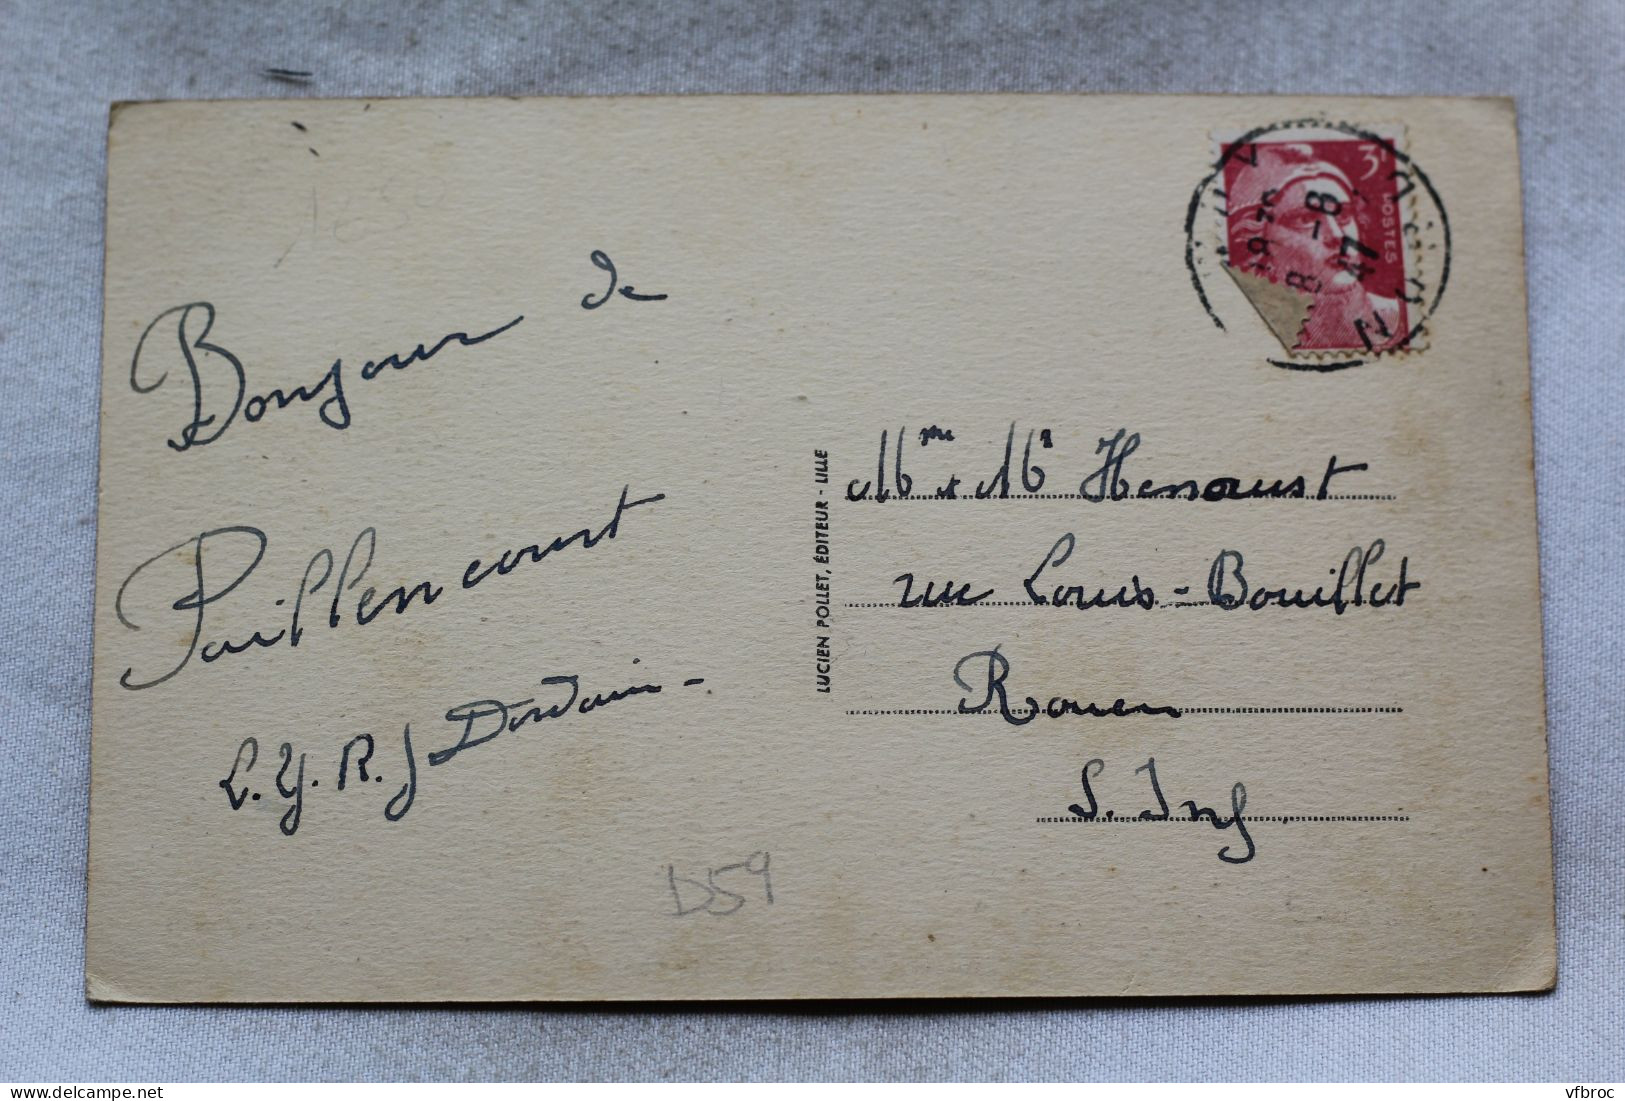 Bonjour de
Paillencourt
L. Y. R. J Dordain -
D59
LUCIEN POLLET, ÉDITEUR - LILLE
3F
POSTES
8 - 8
47
Mme & Mr Henoust
rue Louis-Bouillet
Rouen
S. Inf
delcampe.net
vfbroc